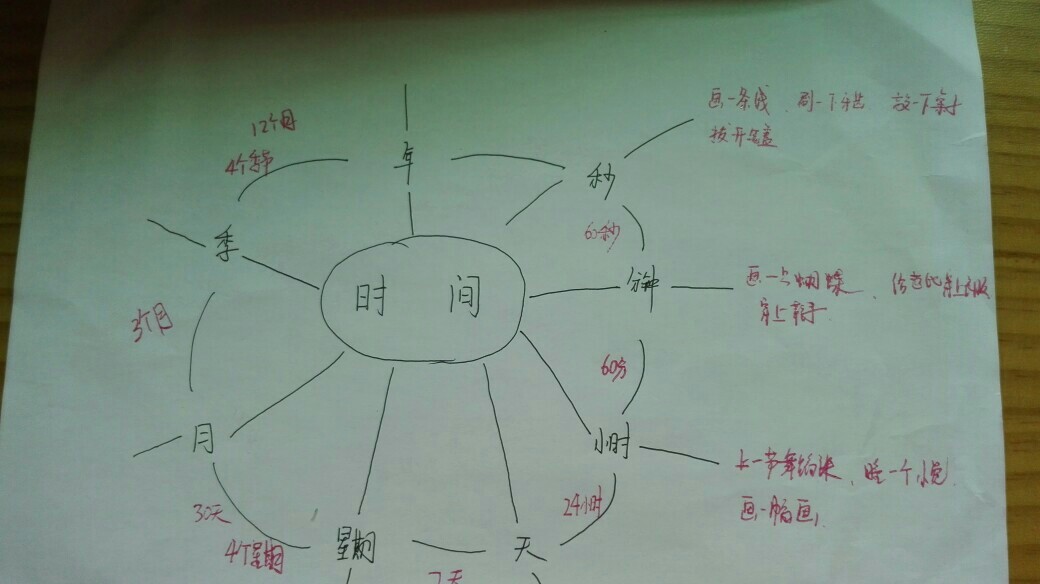 画一条线、刷一下牙 放一下
拔开笔盖
12个月
4个季节
年
秒
60秒
季
时 间
分钟
画一只蝴蝶、给芭比穿上衣服
穿上鞋子
3个月
60分
月
小时
上一节舞蹈课、睡一个小觉
画一幅画
30天
24小时
4个星期
星期
天
7天